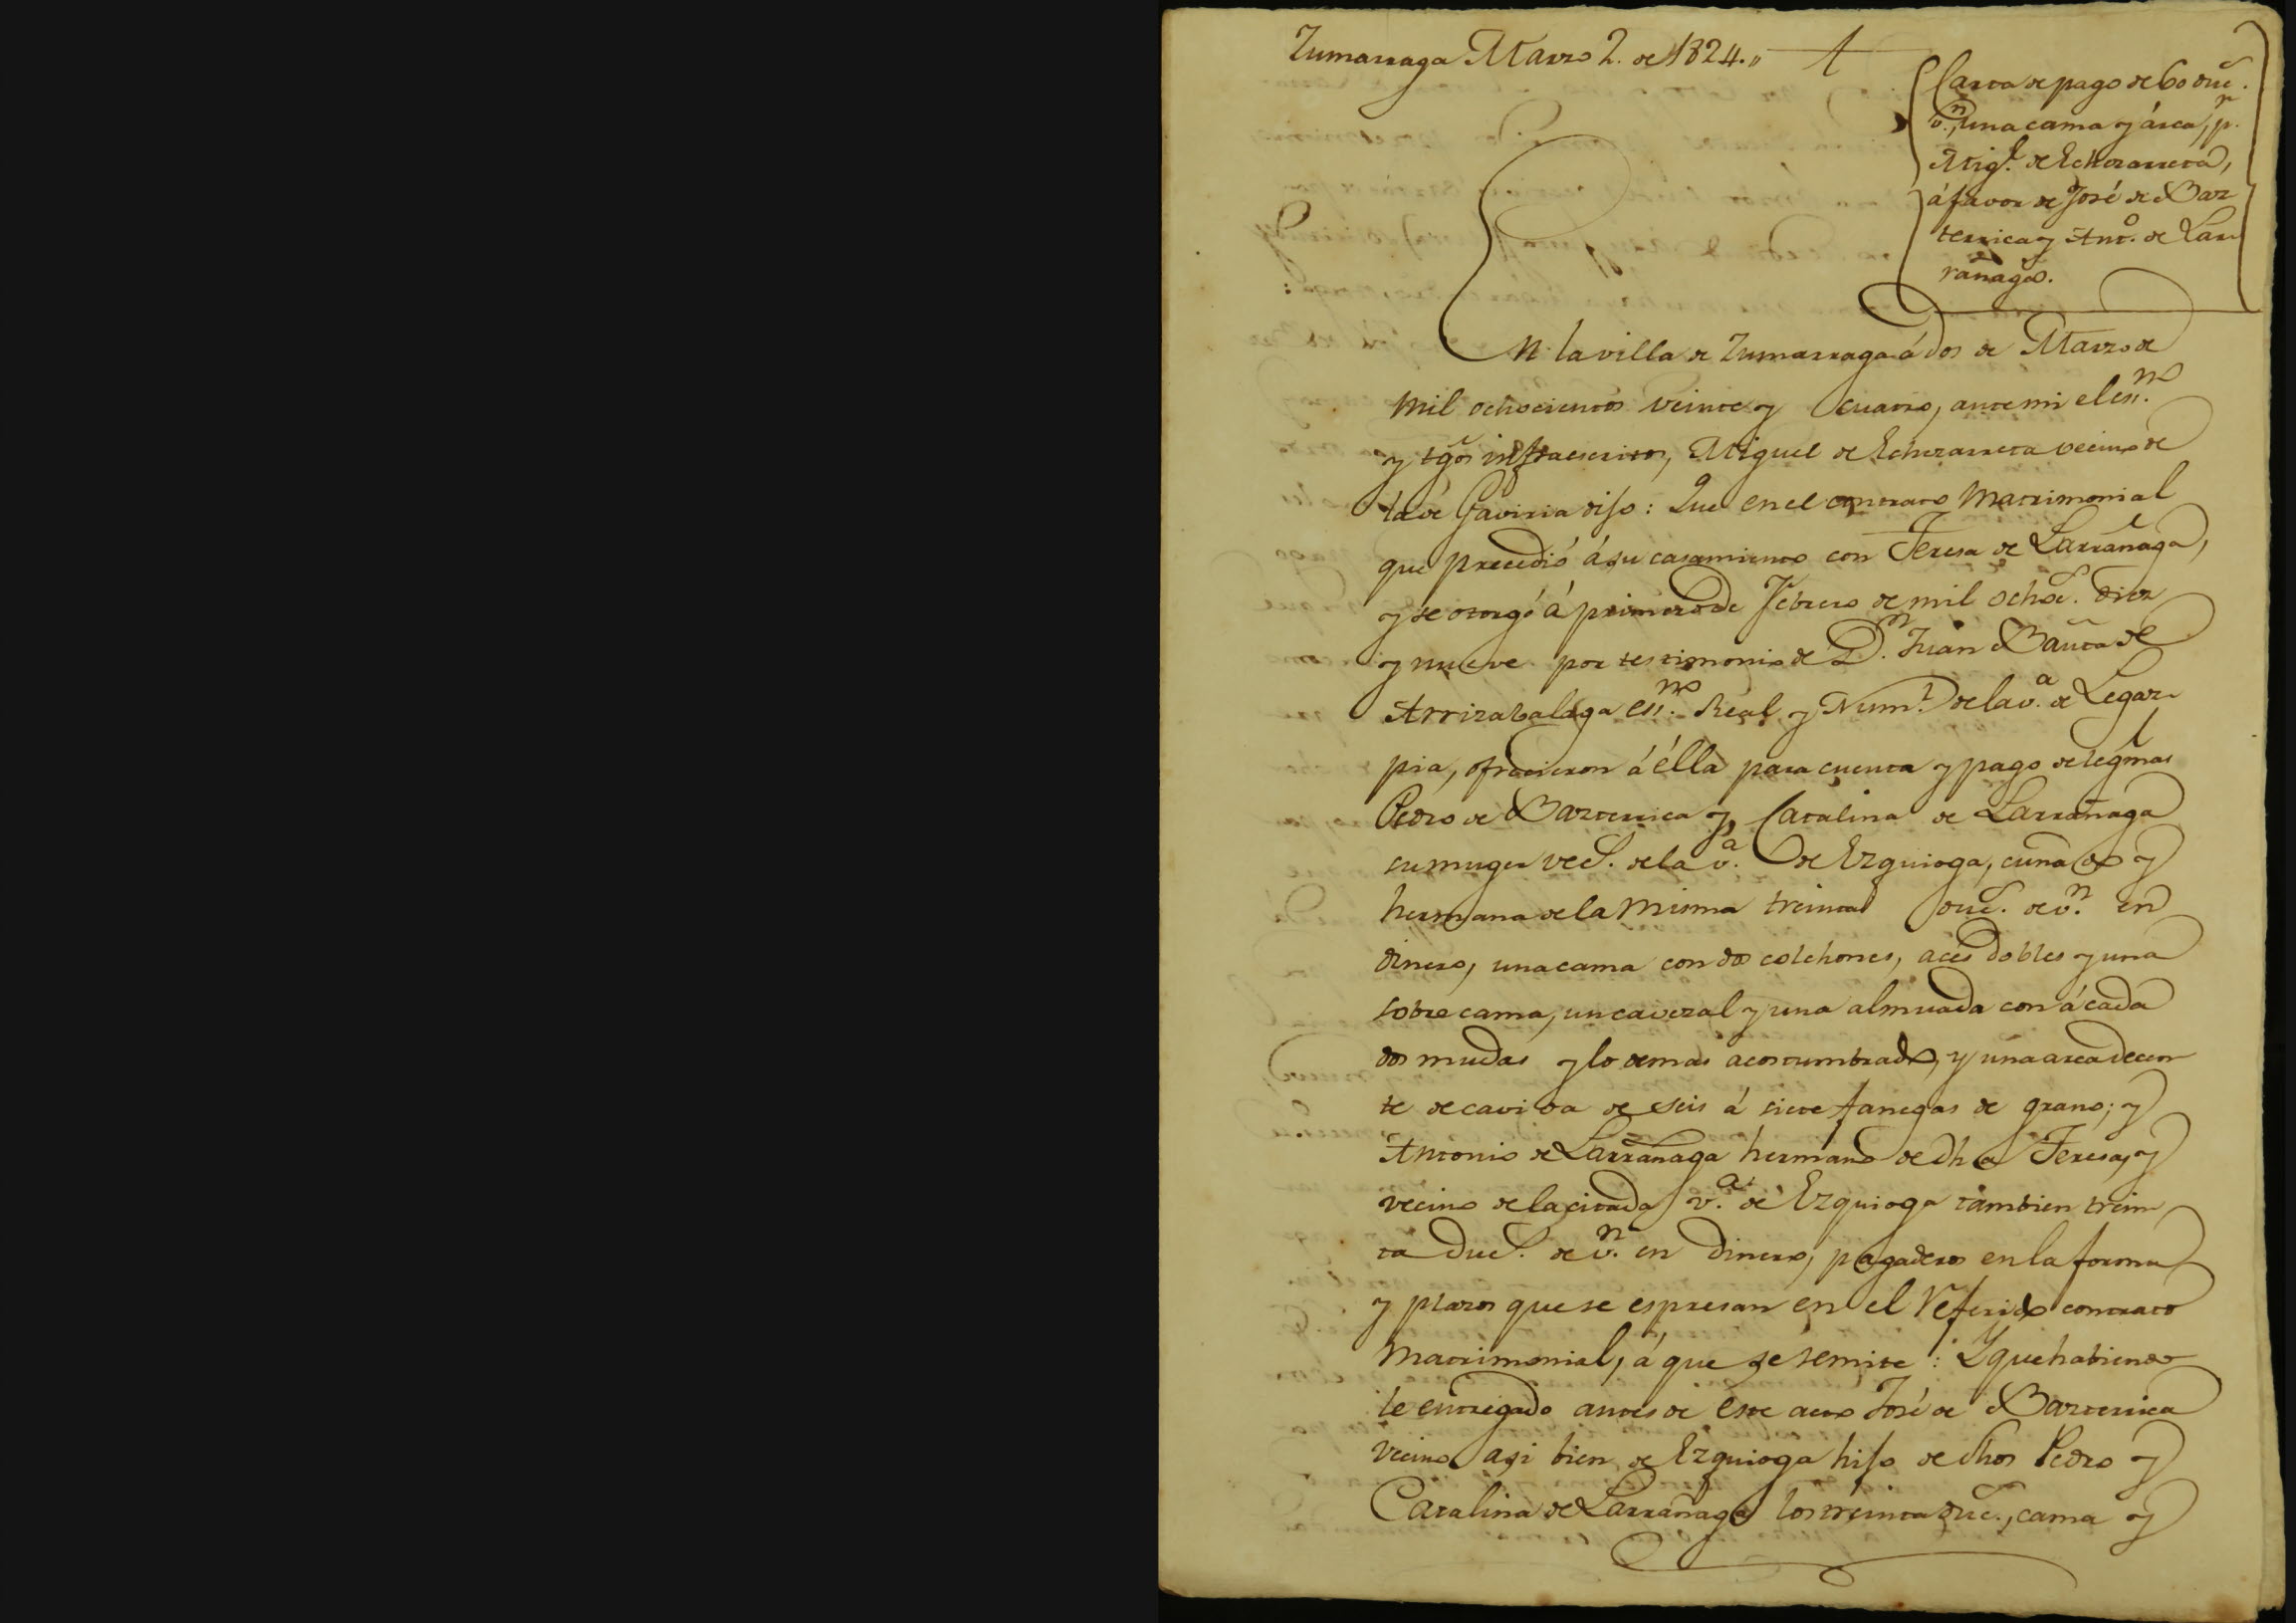 Zumarraga Marzo 2. de 1824.,,
Carta de pago de 60 duc.^s
v.^n, una cama y árca, p.^r
Mig.^l de Echezarreta,
á favor de José de Baz-
terrica y Ant.^o de Lar-
rañaga.
En la villa de Zumarraga á dos de Marzo de
mil ochocientos veinte y cuatro, ante mi el ess.^no
y tg̃os infraescritos, Miguel de Echezarreta vecino de
la de Gaviria dijo: Que en el contrato Matrimonial
que precedió á su casamiento con Teresa de Larrañaga,
y se otorgó á primero de Febrero de mil ochoc.^s diez
y nueve por testimonio de D.^n Juan Bau̅ta de
Arrizabalaga ess.^no Real y Num.^l de la v.^a de Legaz-
pia, ofrecieron á élla para cuenta y pago de legm̃as
Pedro de Bazterrica y Catalina de Larrañaga
su muger vec.^s de la v.^a de Ezquioga, cuñado y
hermana de la misma treinta duc.^s de v.^n en
dinero, una cama con dos colchones, aces dobles y una
sobre cama, un cavezal y una almuada con á cada
dos mudas y lo demas acostumbrado, y una arca decen-
te de cavida de seis á siete fanegas de grano; y
Antonio de Larrañaga hermano de dha Teresa, y
vecino de la citada v.^a de Ezquioga tambien trein-
ta duc.^s de v.^n en dinero, pagaderos en la forma
y plazos que se espresan en el referido contrato
Matrimonial, á que se remite: Y que habiendo-
le entregado antes de este acto José de Bazterrica
vecino asi bien de Ezquioga hijo de dhos Pedro y
Catalina de Larrañaga los treinta duc.^s, cama y